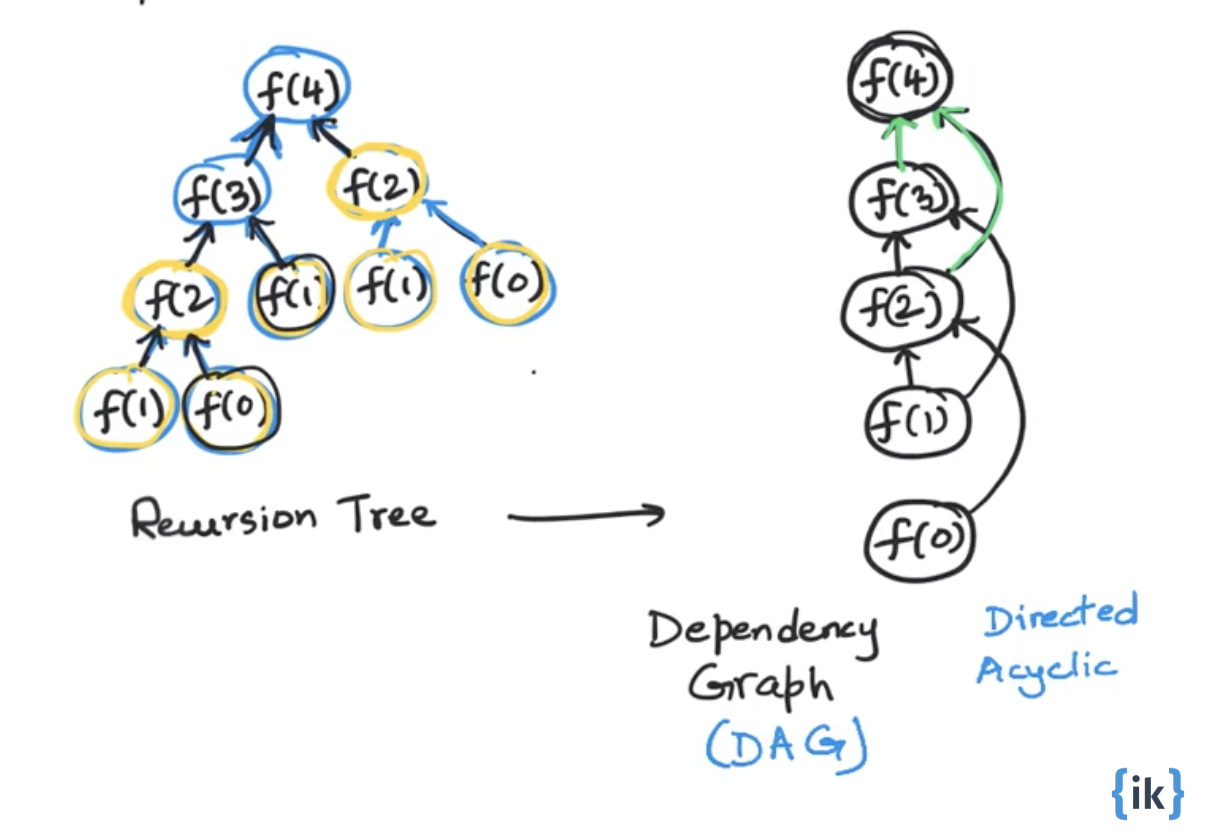 f(4)
f(3) f(2)
f(2 f(1) f(1) f(0)
f(1) f(0)
Recursion Tree
f(4)
f(3)
f(2)
f(1)
f(0)
Dependency
Graph
(DAG)
Directed
Acyclic
{ik}